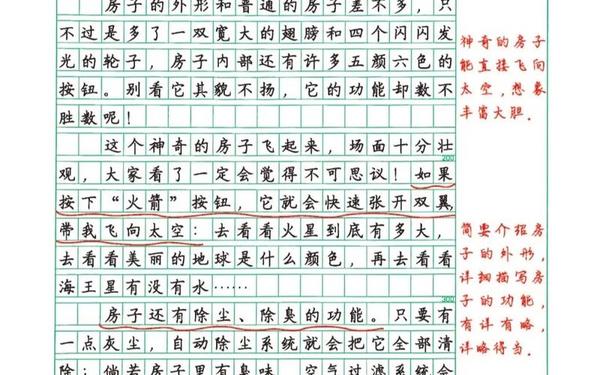 房子的外形和普通的房子差不多，只
不过是多了一双宽大的翅膀和四个闪闪发
光的轮子，房子内部还有许多五颜六色的
按钮。别看它其貌不扬，它的功能却数不
胜数呢！
这个神奇的房子飞起来，场面十分壮
200
观，大家看了一定会觉得不可思议！如果
按下“火箭”按钮，它就会快速张开双翼，
带我飞向太空：去看看火星到底有多大，
去看看美丽的地球是什么颜色，再去看看
海王星有没有水……
300
房子还有除尘、除臭的功能。只要有
一点灰尘，自动除尘系统就会把它全部清
除；倘若房子里有臭味，空气过滤系统会
神奇的房子
能直接飞向
太空，想象
丰富大胆．
简要介绍房
子的外形，
详细描写房
子的功能，
有详有略，
详略得当．